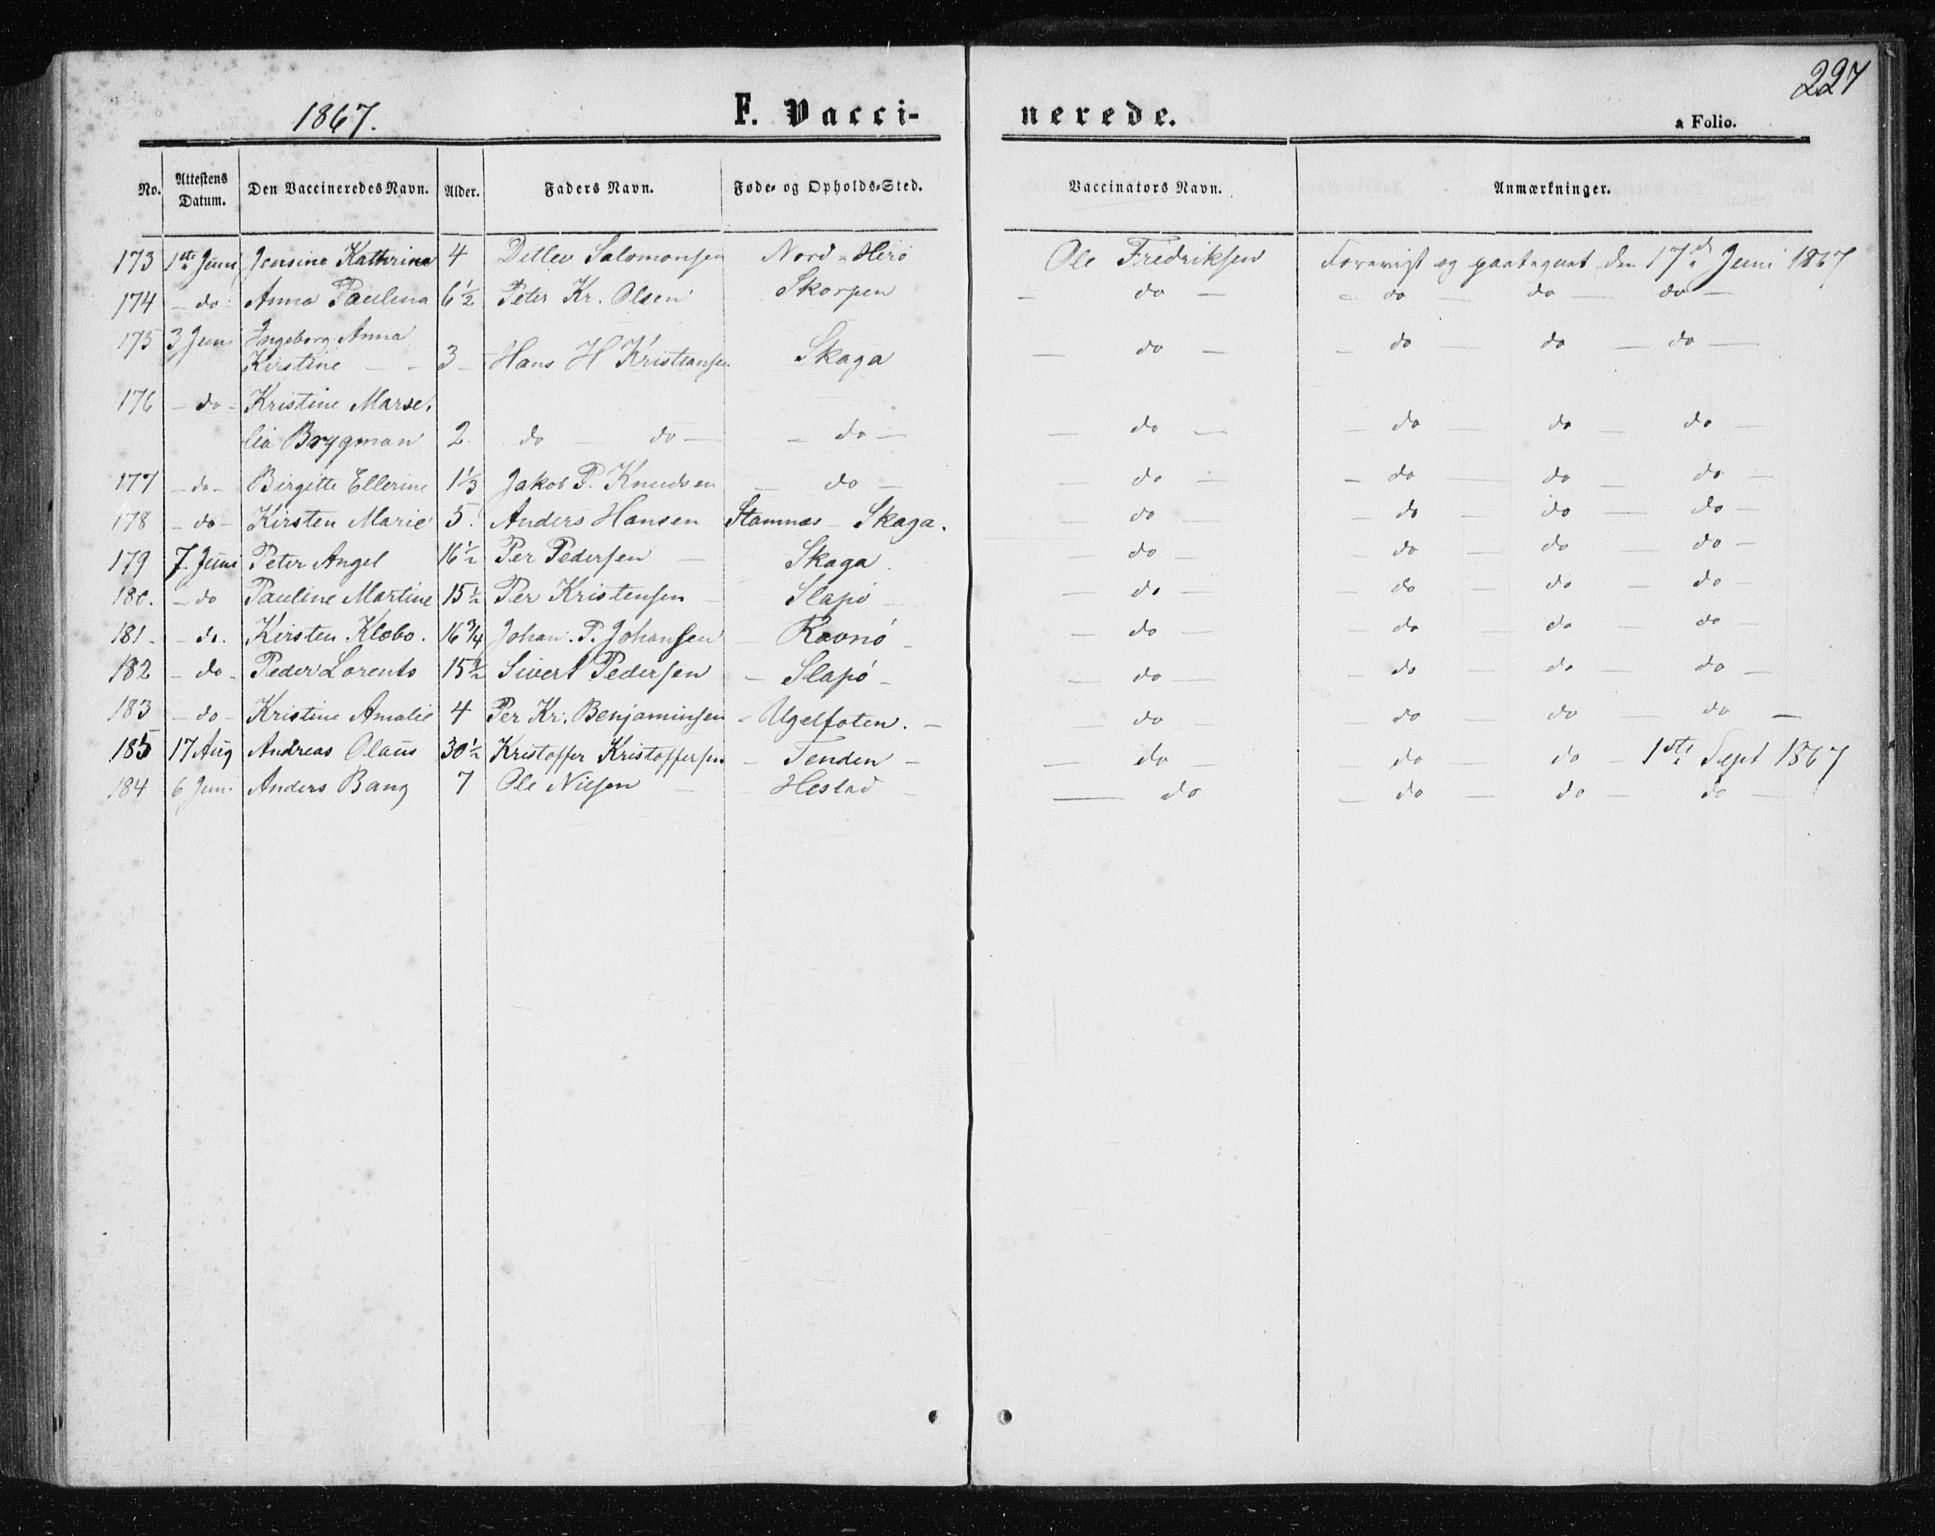 227
1867.
F. Vacci-
nerede.
a Folio.
No. Attestens Datum. Den Vaccineredes Navn. Alder. Faders Navn. Føde- og Opholds-Sted. Vaccinators Navn. Anmærkninger.
173 1ste Juni Jensine Kathrine 4 Detlev Salomonsen Nord-Herø Ole Fredriksen Forevist og paategnet den 17de Juni 1867
174 - do - Anna Paulina 6½ Peter Kr. Olsen Skorpen - do - - do - do - do -
175 3 Juni Ingeborg Anna
Kirstine - - 3 - Hans H Kristiansen Skaga - do - - do - do - do -
176 - do - Kristine Marse-
lia Brygman 2. do - do - - do - - do - - do - do - do -
177 - do - Birgitte Ellerine 1⅓ Jakob P. Knudsen - do - - do - - do - do - do -
178 - do - Kirsten Marie 5. Anders Hansen Stamnæs - Skaga. do - do - do - do -
179 7. Juni Peter Angel 16½ Per Pedersen - Skaga. - do - - do - do - do -
180. - do Pauline Martine 15½ Per Kristensen - Slapø - - do - - do - do - do -
181. - do. Kirsten Klobo. 16¾ Johan. P. Johansen - Ravnø - - do - - do - do - do -
182 - do - Peder Lorents 15½ Sivert Pedersen - Slapø - - do - - do - do - do -
183 - do - Kristine Amalie 4 Per Kr. Benjaminsen - Ugelfoten. - - do - - do - do - do -
185 17 Aug Andreas Olaus 30½ Kristoffer Kristoffersen - Tenden - - do - - do - do - 1ste Sept 1867
184 6 Jun. Anders Bang 7 Ole Nilsen - Hestad - - do - do - do - do -